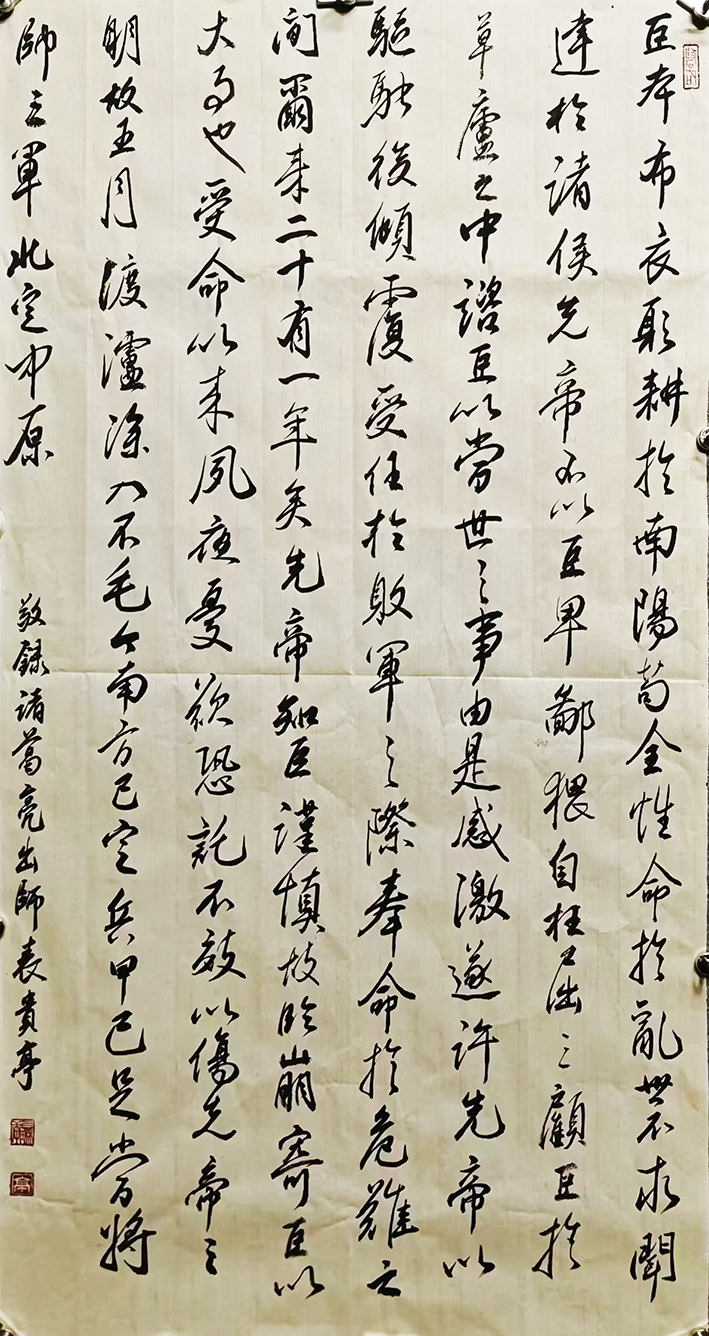 臣本布衣躬耕於南陽苟全性命於亂世不求聞
達於諸侯先帝不以臣卑鄙猥自枉屈三顧臣於
草廬之中諮臣以當世之事由是感激遂許先帝以
驅馳後傾覆受任於敗軍之際奉命於危難之
間爾來二十有一年矣先帝知臣謹慎故臨崩寄臣以
大事也受命以來夙夜憂歎恐託不效以傷先帝之
明故五月渡瀘深入不毛今南方已定兵甲已足當將
帥三軍北定中原
敬錄諸葛亮出師表貴亭